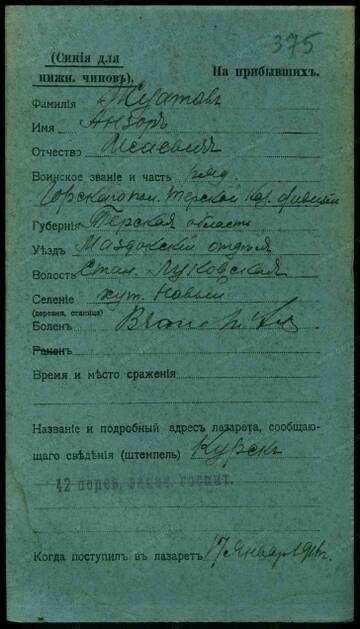 375
(Синія для
нижн. чиновъ).
На прибывшихъ.
Фамилія
Имя Анзоръ
Отчество Исаевичъ
Воинское званіе и часть ряд.
Горскаго пол. Терской Каз. дивизіи
Губернія Терская область
Уѣздъ Моздокскій отдѣлъ
Волость Стан. Луковская
Селеніе хут. Новый
(деревня, станица)
Боленъ Bronchitis
Раненъ
Время и мѣсто сраженія
Названіе и подробный адресъ лазарета, сообщаю-
щаго свѣдѣнія (штемпель) Курскъ
42 полев. запас. госпит.
Когда поступилъ въ лазаретъ 17 Января